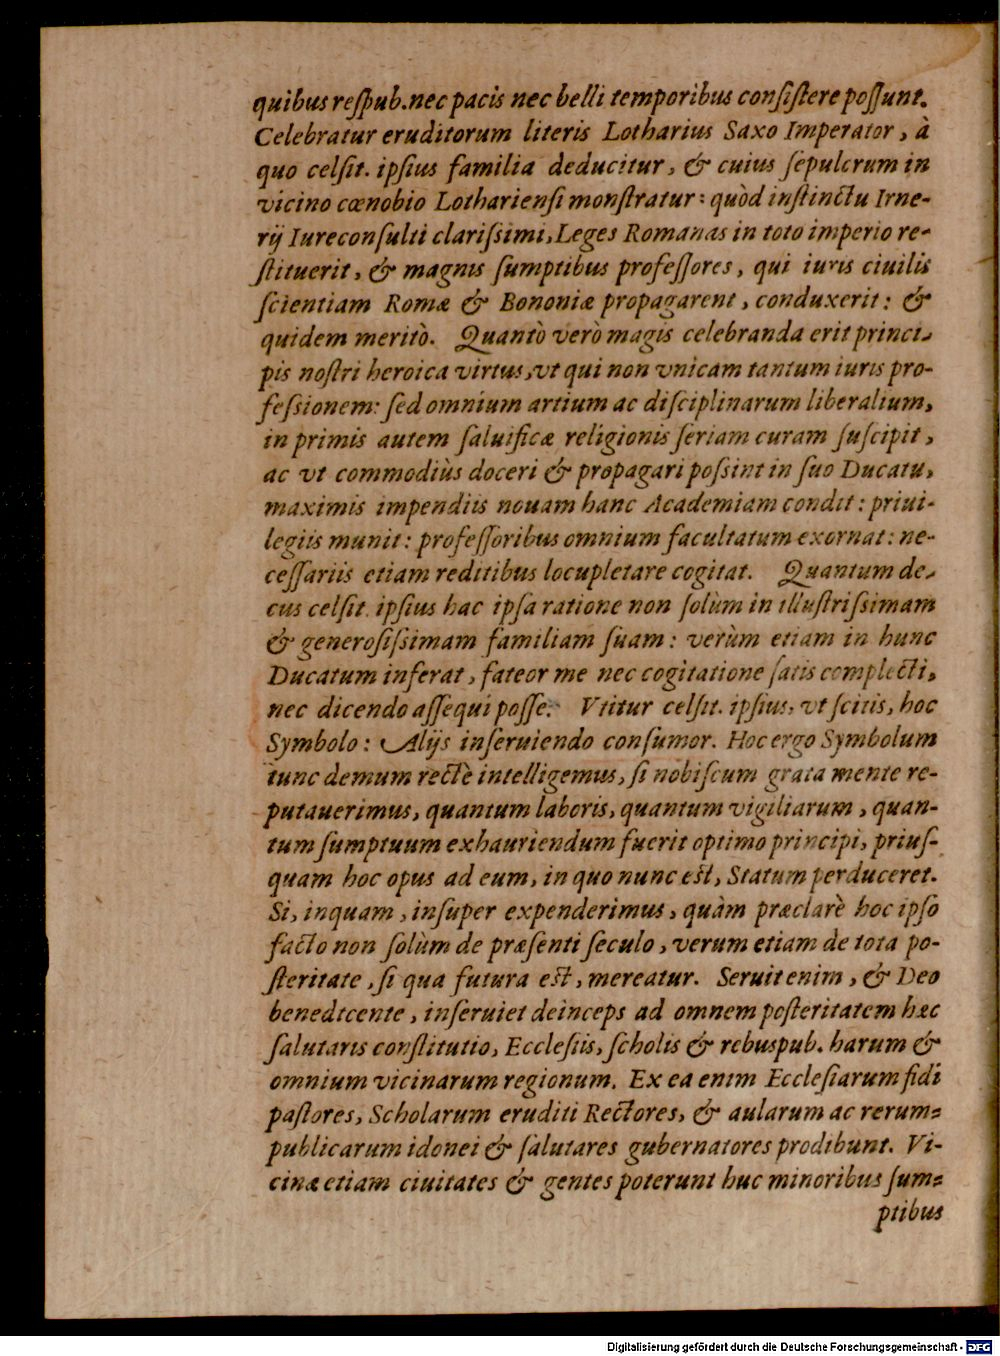 quibus reſpub. nec pacis nec belli temporibus conſiſtere poſſunt.
Celebratur eruditorum literis Lotharius Saxo Imperator, à
quo celſit. ipſius familia deducitur, & cuius ſepulcrum in
vicino cœnobio Lotharienſi monſtratur: quòd inſtinctu Irne-
rij Iureconſulti clariſsimi, Leges Romanas in toto imperio re-
ſtituerit, & magnis ſumptibus profeſſores, qui iuris ciuilis
ſcientiam Romæ & Bononiæ propagarent, conduxerit: &
quidem meritò. Quantò verò magis celebranda erit princi-
pis noſtri heroica virtus, vt qui non vnicam tantum iuris pro-
feſsionem: ſed omnium artium ac diſciplinarum liberalium,
in primis autem ſaluificæ religionis ſeriam curam ſuſcipit,
ac vt commodiùs doceri & propagari poſsint in ſuo Ducatu,
maximis impendiis nouam hanc Academiam condit: priui-
legiis munit: profeſſoribus omnium facultatum exornat: ne-
ceſſariis etiam reditibus locupletare cogitat. Quantum de-
cus celſit. ipſius hac ipſa ratione non ſolùm in illuſtriſsimam
& generoſiſsimam familiam ſuam: verùm etiam in hunc
Ducatum inferat, fateor me nec cogitatione ſatis complecti,
nec dicendo aſſequi poſſe. Vtitur celſit. ipſius, vt ſcitis, hoc
Symbolo: Alijs inſeruiendo conſumor. Hoc ergo Symbolum
tunc demum rectè intelligemus, ſi nobiſcum grata mente re-
putauerimus, quantum laboris, quantum vigiliarum, quan-
tum ſumptuum exhauriendum fuerit optimo principi, priuſ-
quam hoc opus ad eum, in quo nunc eſt, Statum perduceret.
Si, inquam, inſuper expenderimus, quàm præclarè hoc ipſo
facto non ſolùm de præſenti ſeculo, verum etiam de tota po-
ſteritate, ſi qua futura eſt, mereatur. Seruit enim, & Deo
benedicente, inſeruiet deinceps ad omnem poſteritatem hæc
ſalutaris conſtitutio, Eccleſiis, ſcholis & rebuspub. harum &
omnium vicinarum regionum. Ex ea enim Eccleſiarum fidi
paſtores, Scholarum eruditi Rectores, & aularum ac rerum-
publicarum idonei & ſalutares gubernatores prodibunt. Vi-
cinæ etiam ciuitates & gentes poterunt huc minoribus ſum-
ptibus
Digitalisierung gefördert durch die Deutsche Forschungsgemeinschaft - DFG